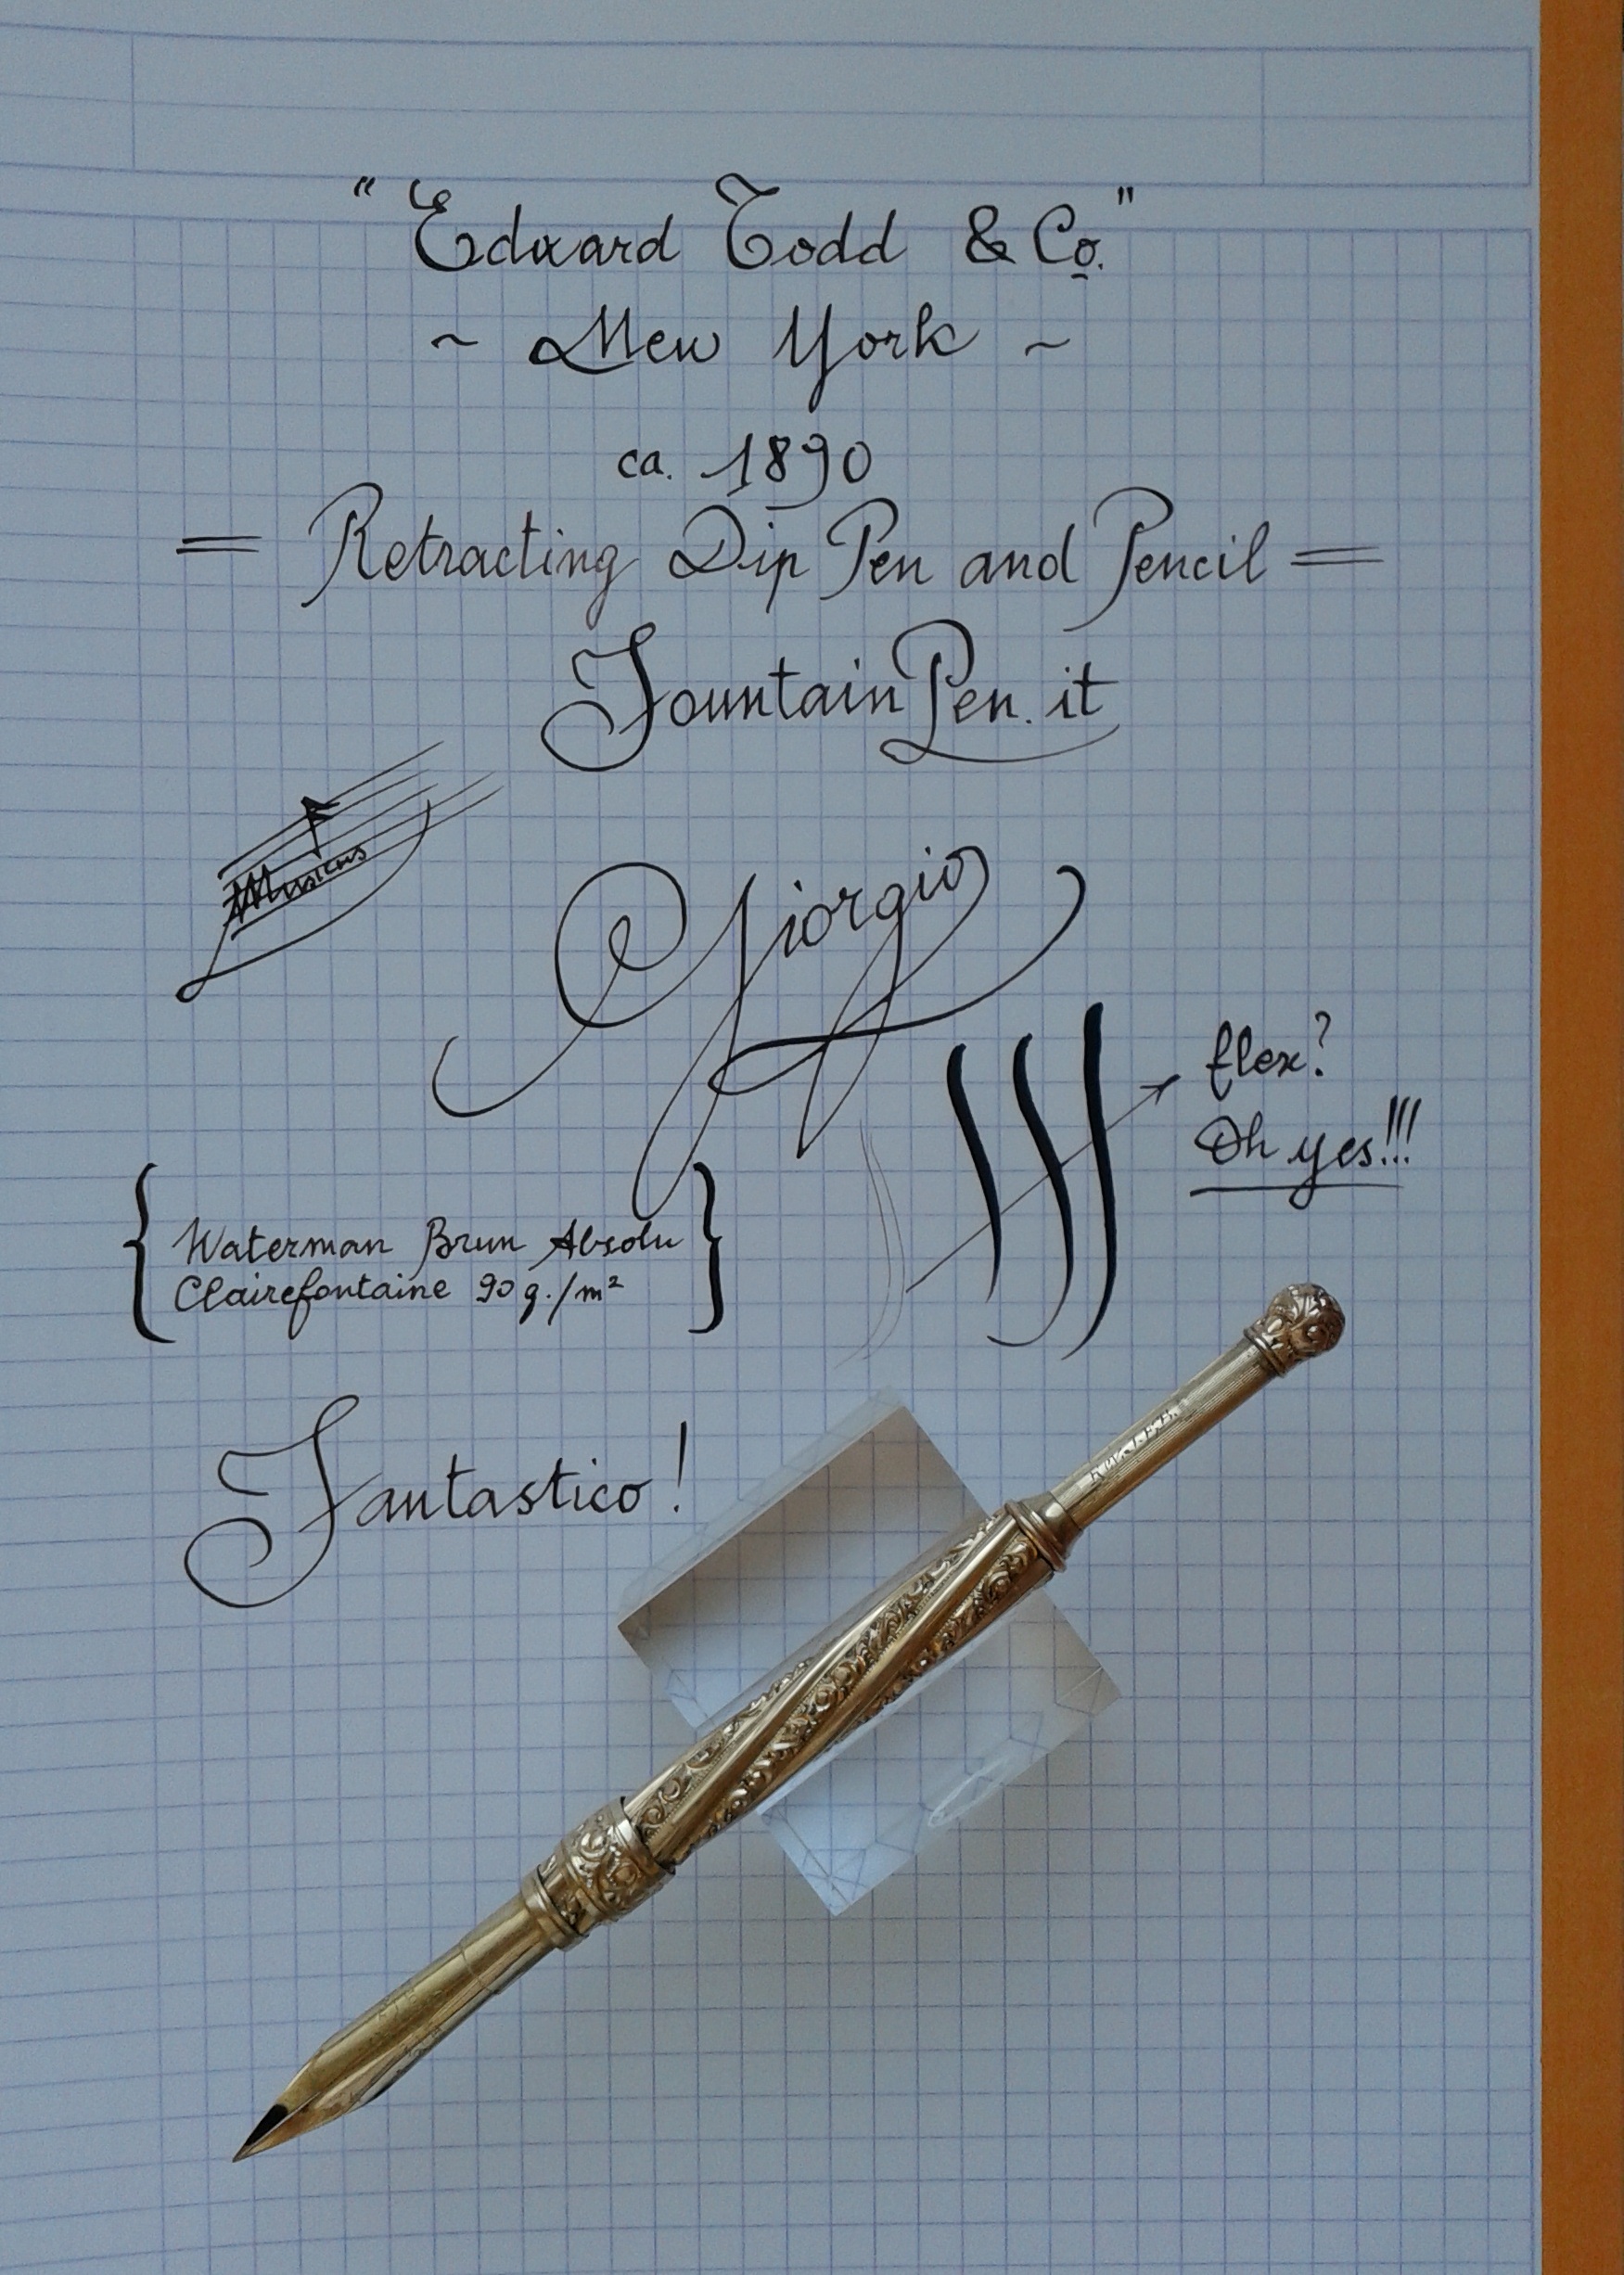 "Edward Todd & Co."
~ New York ~
ca. 1890
= Retracting Dip Pen and Pencil =
FountainPen.it
Musicus
Giorgio
flex?
Oh yes!!!
{ Waterman Brun Absolu
Clairefontaine 90 g./m² }
Fantastico!